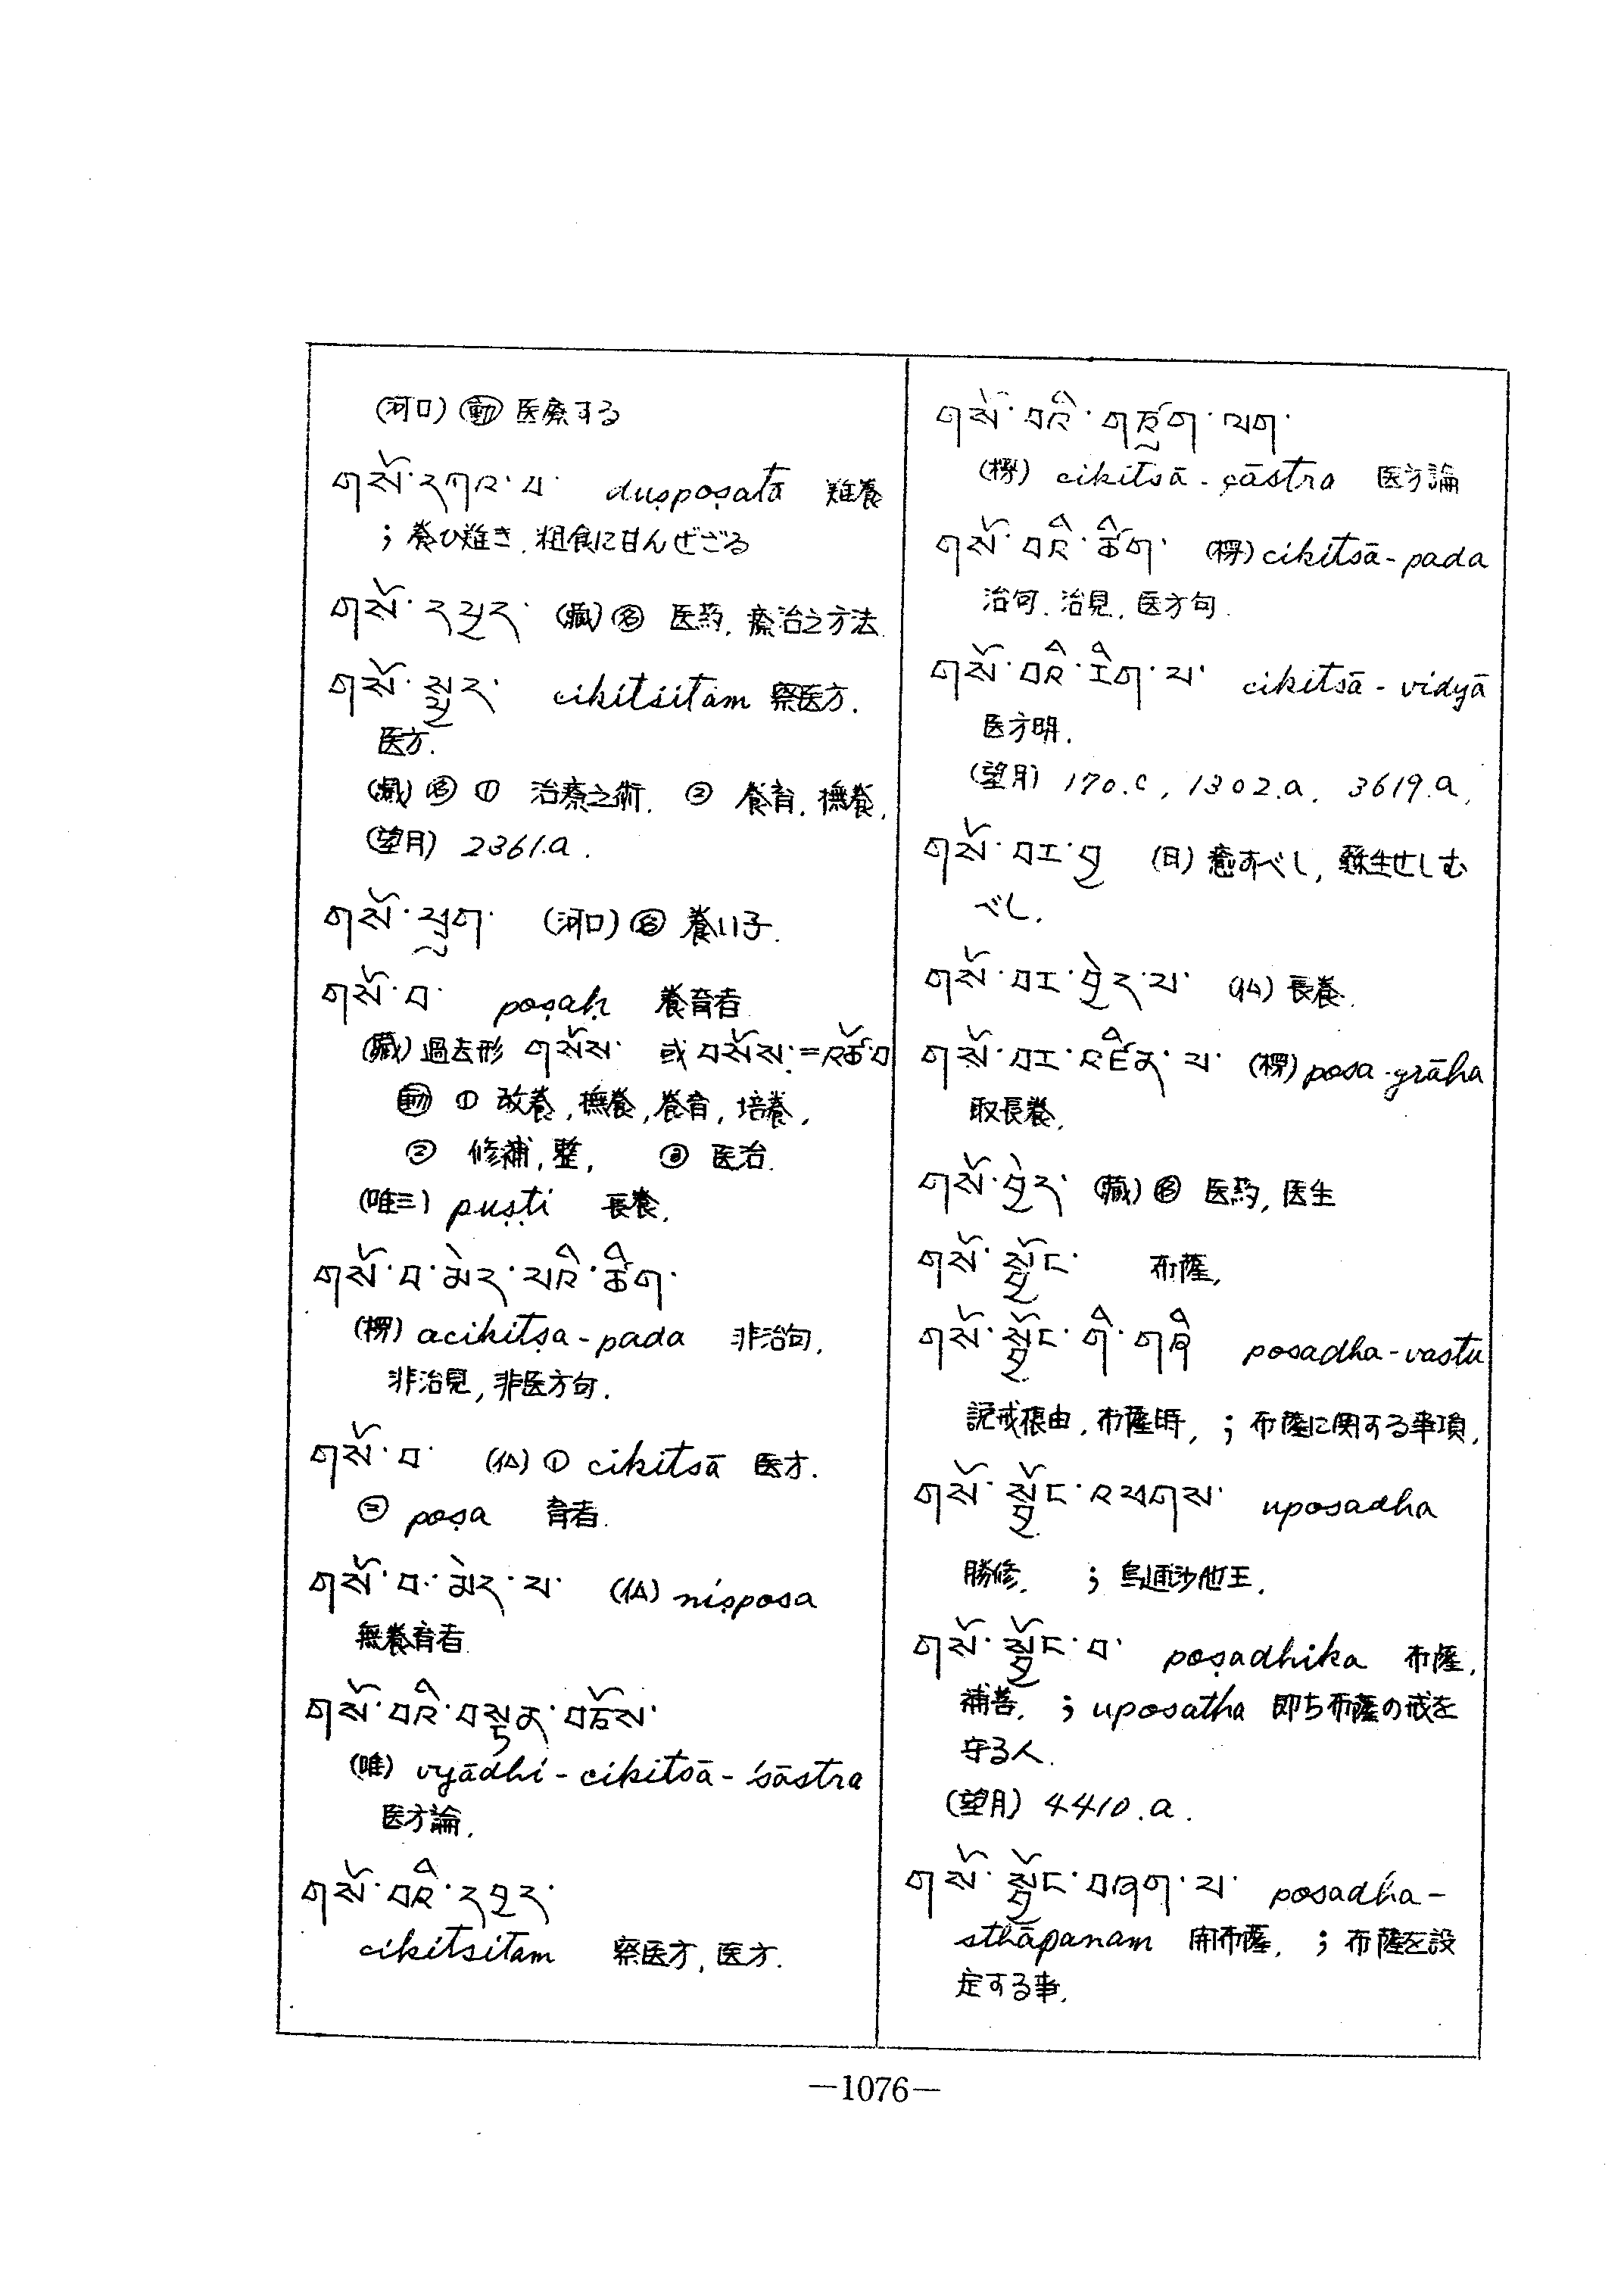 (河口) 動 医療する
གསོ་དཀའ་བ་ duṣpoṣatā 難養
; 養ひ難き, 粗食に甘んぜざる
གསོ་དཔྱད་ (藏) 名 医药, 療治之方法
གསོ་སྤྱད་ cikitsitam 察医方.
医方.
(藏) 名 ① 治療之術. ② 養育, 撫養,
(望月) 2361.a.
གསོ་ཕྲུག་ (河口) 名 養い子.
གསོ་བ་ poṣaḥ 養育者
(藏) 過去形 གསོས་ 或 བསོས་=འཚོ་བ
動 ① 放養, 撫養, 養育, 培養,
② 修補, 整, ③ 医治.
(唯三) puṣṭi 長養.
གསོ་བ་མེད་པའི་ཚིག་
(楞) acikitṣa-pada 非治句,
非治見, 非医方句.
གསོ་བ་ (仏) ① cikitsā 医才.
② poṣa 育者.
གསོ་བ་མེད་པ་ (仏) niṣposa
無養育者.
གསོ་བའི་བསྟན་བཅོས་
(唯) vyādhi-cikitsā-śāstra
医方論.
གསོ་བའི་དཔྱད་
cikitsitam 察医方, 医方.
གསོ་བའི་གཙུག་ལག་
(楞) cikitsā-çāstra 医方論
གསོ་བའི་ཚིག་ (楞) cikitsā-pada
治句. 治見, 医方句.
གསོ་བའི་རིག་པ་ cikitsā-vidyā
医方明.
(望月) 170.c, 1302.a, 3619.a,
གསོ་བར་བྱ (日) 癒すべし, 蘇生せしむ
べし.
གསོ་བར་བྱེད་པ་ (仏) 長養.
གསོ་བར་འཛིན་པ་ (楞) posa-grāha
取長養.
གསོ་བྱེད་ (藏) 名 医药, 医生
གསོ་སྦྱོང་ 布薩,
གསོ་སྦྱོང་གི་གཞི posadha-vastu
記戒根由, 布薩時, ; 布薩に関する事項,
གསོ་སྦྱོང་འཕགས་ uposadha
勝修. ; 烏逋沙他王.
གསོ་སྦྱོང་བ་ poṣadhika 布薩,
補善. ; uposatha 即ち布薩の戒を
守る人.
(望月) 4410.a.
གསོ་སྦྱོང་བཞག་པ་ posadha-
sthāpanam 開布薩. ; 布薩を設
定する事.
—1076—